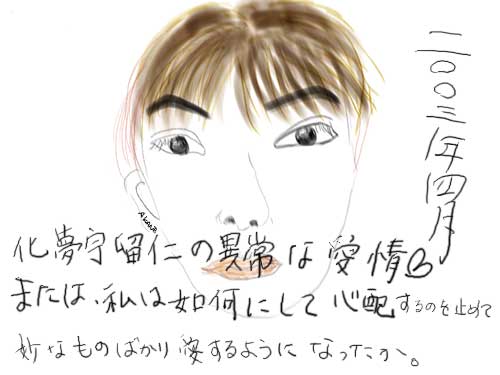 二〇〇三年四月
化夢宇留仁の異常な愛情
または、私は如何にして心配するのを止めて
妙なものばかり愛するようになったか。